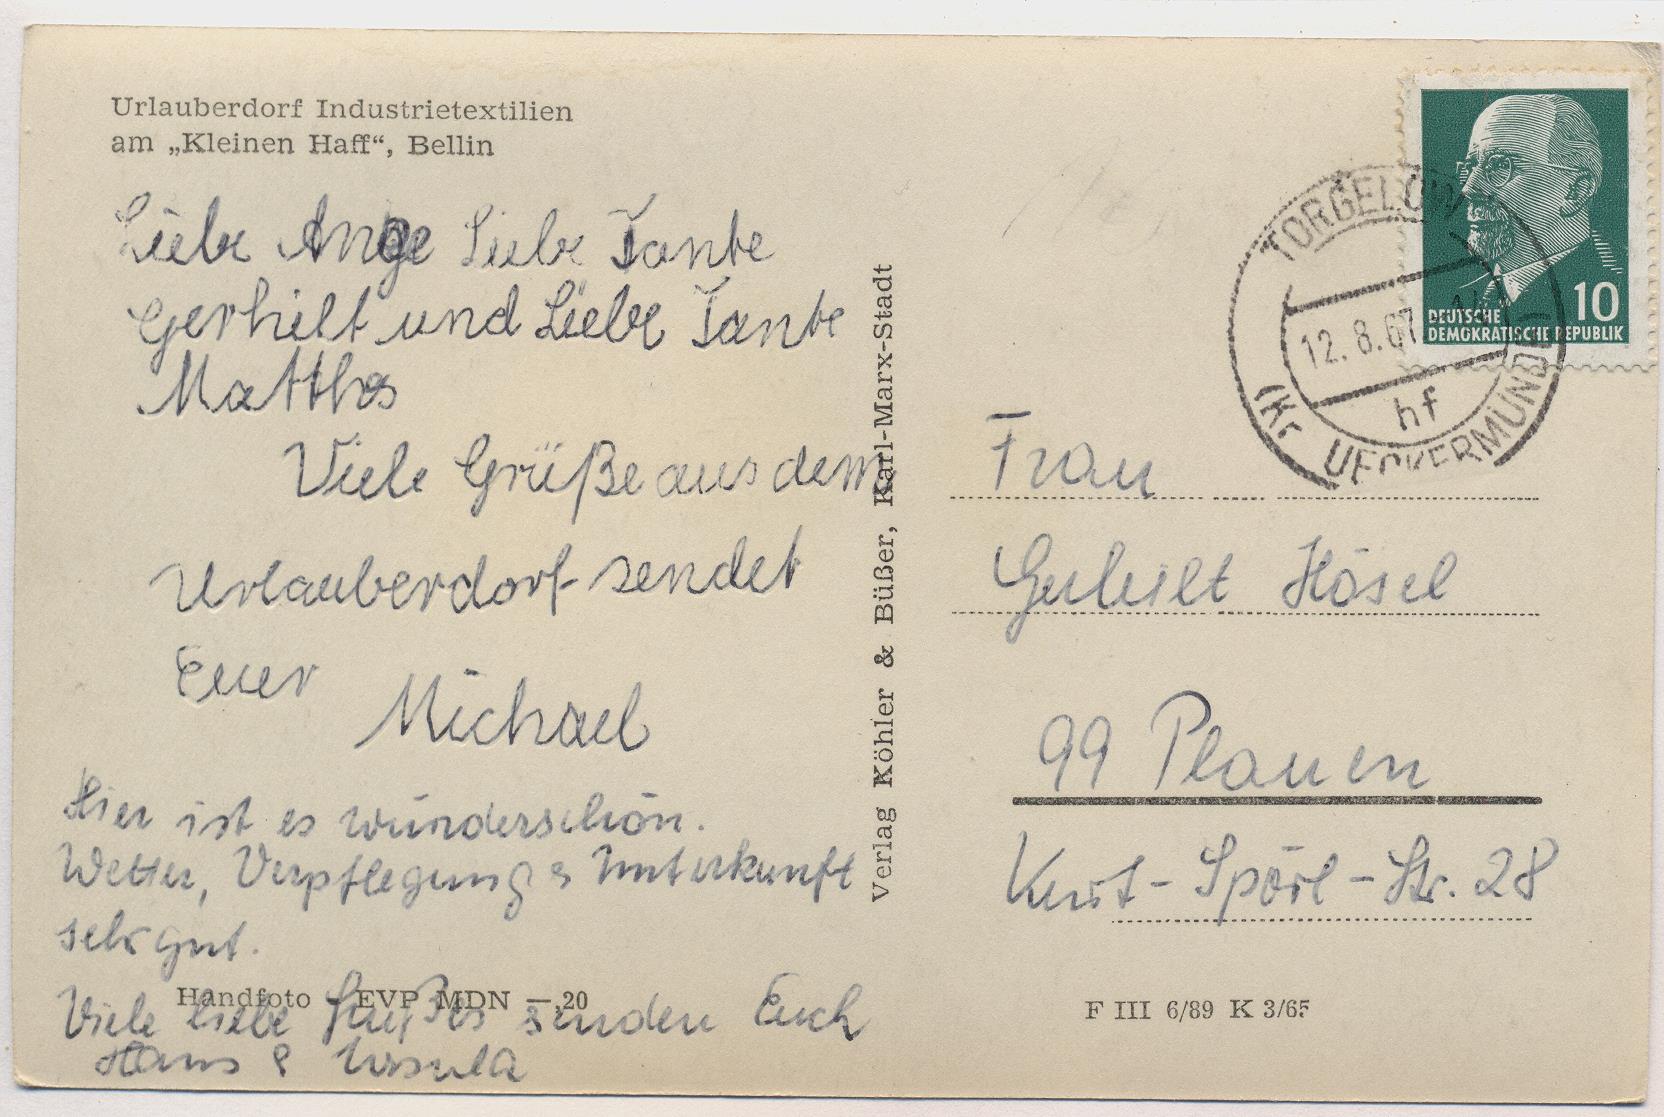 Urlauberdorf Industrietextilien
am „Kleinen Haff“, Bellin
Liebe Ange Liebe Tante
Gerhilt und Liebe Tante
Matthes
Viele Grüße aus dem
Urlauberdorf sendet
Euer
Michael
Hier ist es wunderschön.
Wetter, Verpflegung & Unterkunft
sehr gut.
Viele liebe senden Euch
Hans & Ursula
Handfoto - EVP MDN —,20
Verlag Köhler & Büßer, Karl-Marx-Stadt
DEUTSCHE
DEMOKRATISCHE REPUBLIK
10
TORGELOW
12.8.67
hf
(Kr UECKERMÜNDE)
Frau
Gerhilt Hösel
99 Plauen
Kurt-Spörl-Str. 28
F III 6/89 K 3/65